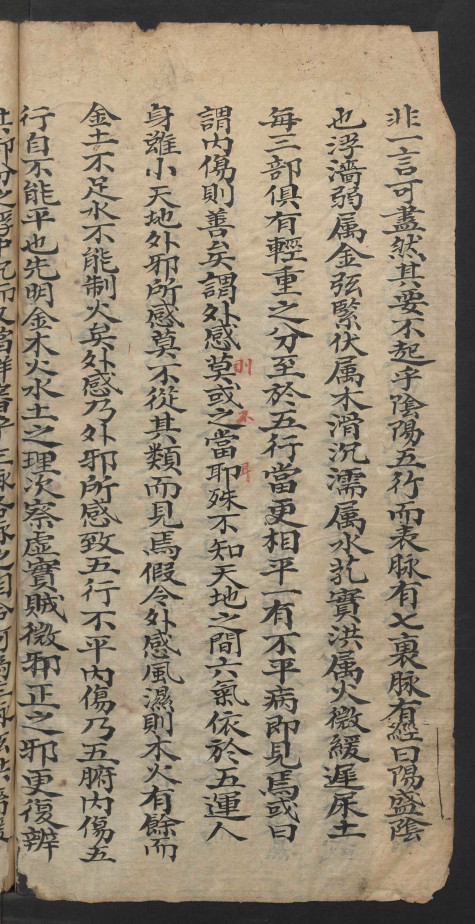 非一言可盡然其要不起乎陰陽五行而表脉有七裏脉有經曰陽盛陰
也浮濇弱属金弦緊伏属木滑沉濡属水芤實洪属火微緩遲属土
每三部俱有輕重之分至於五行當更相平一有不平病即見焉或曰
謂内傷則善矣謂外感莫或之當耶殊不知天地之間六氣依於五運人
則 不 耳
身雖小天地外邪所感莫不從其類而見焉假令外感風濕則木火有餘而
金土不足水不能制火矣外感乃外邪所感致五行不平内傷乃五腑内傷五
行自不能平也先明金木火水土之理次察虚實賊微邪正之邪更復辨
其部分之浮中沉而又當詳